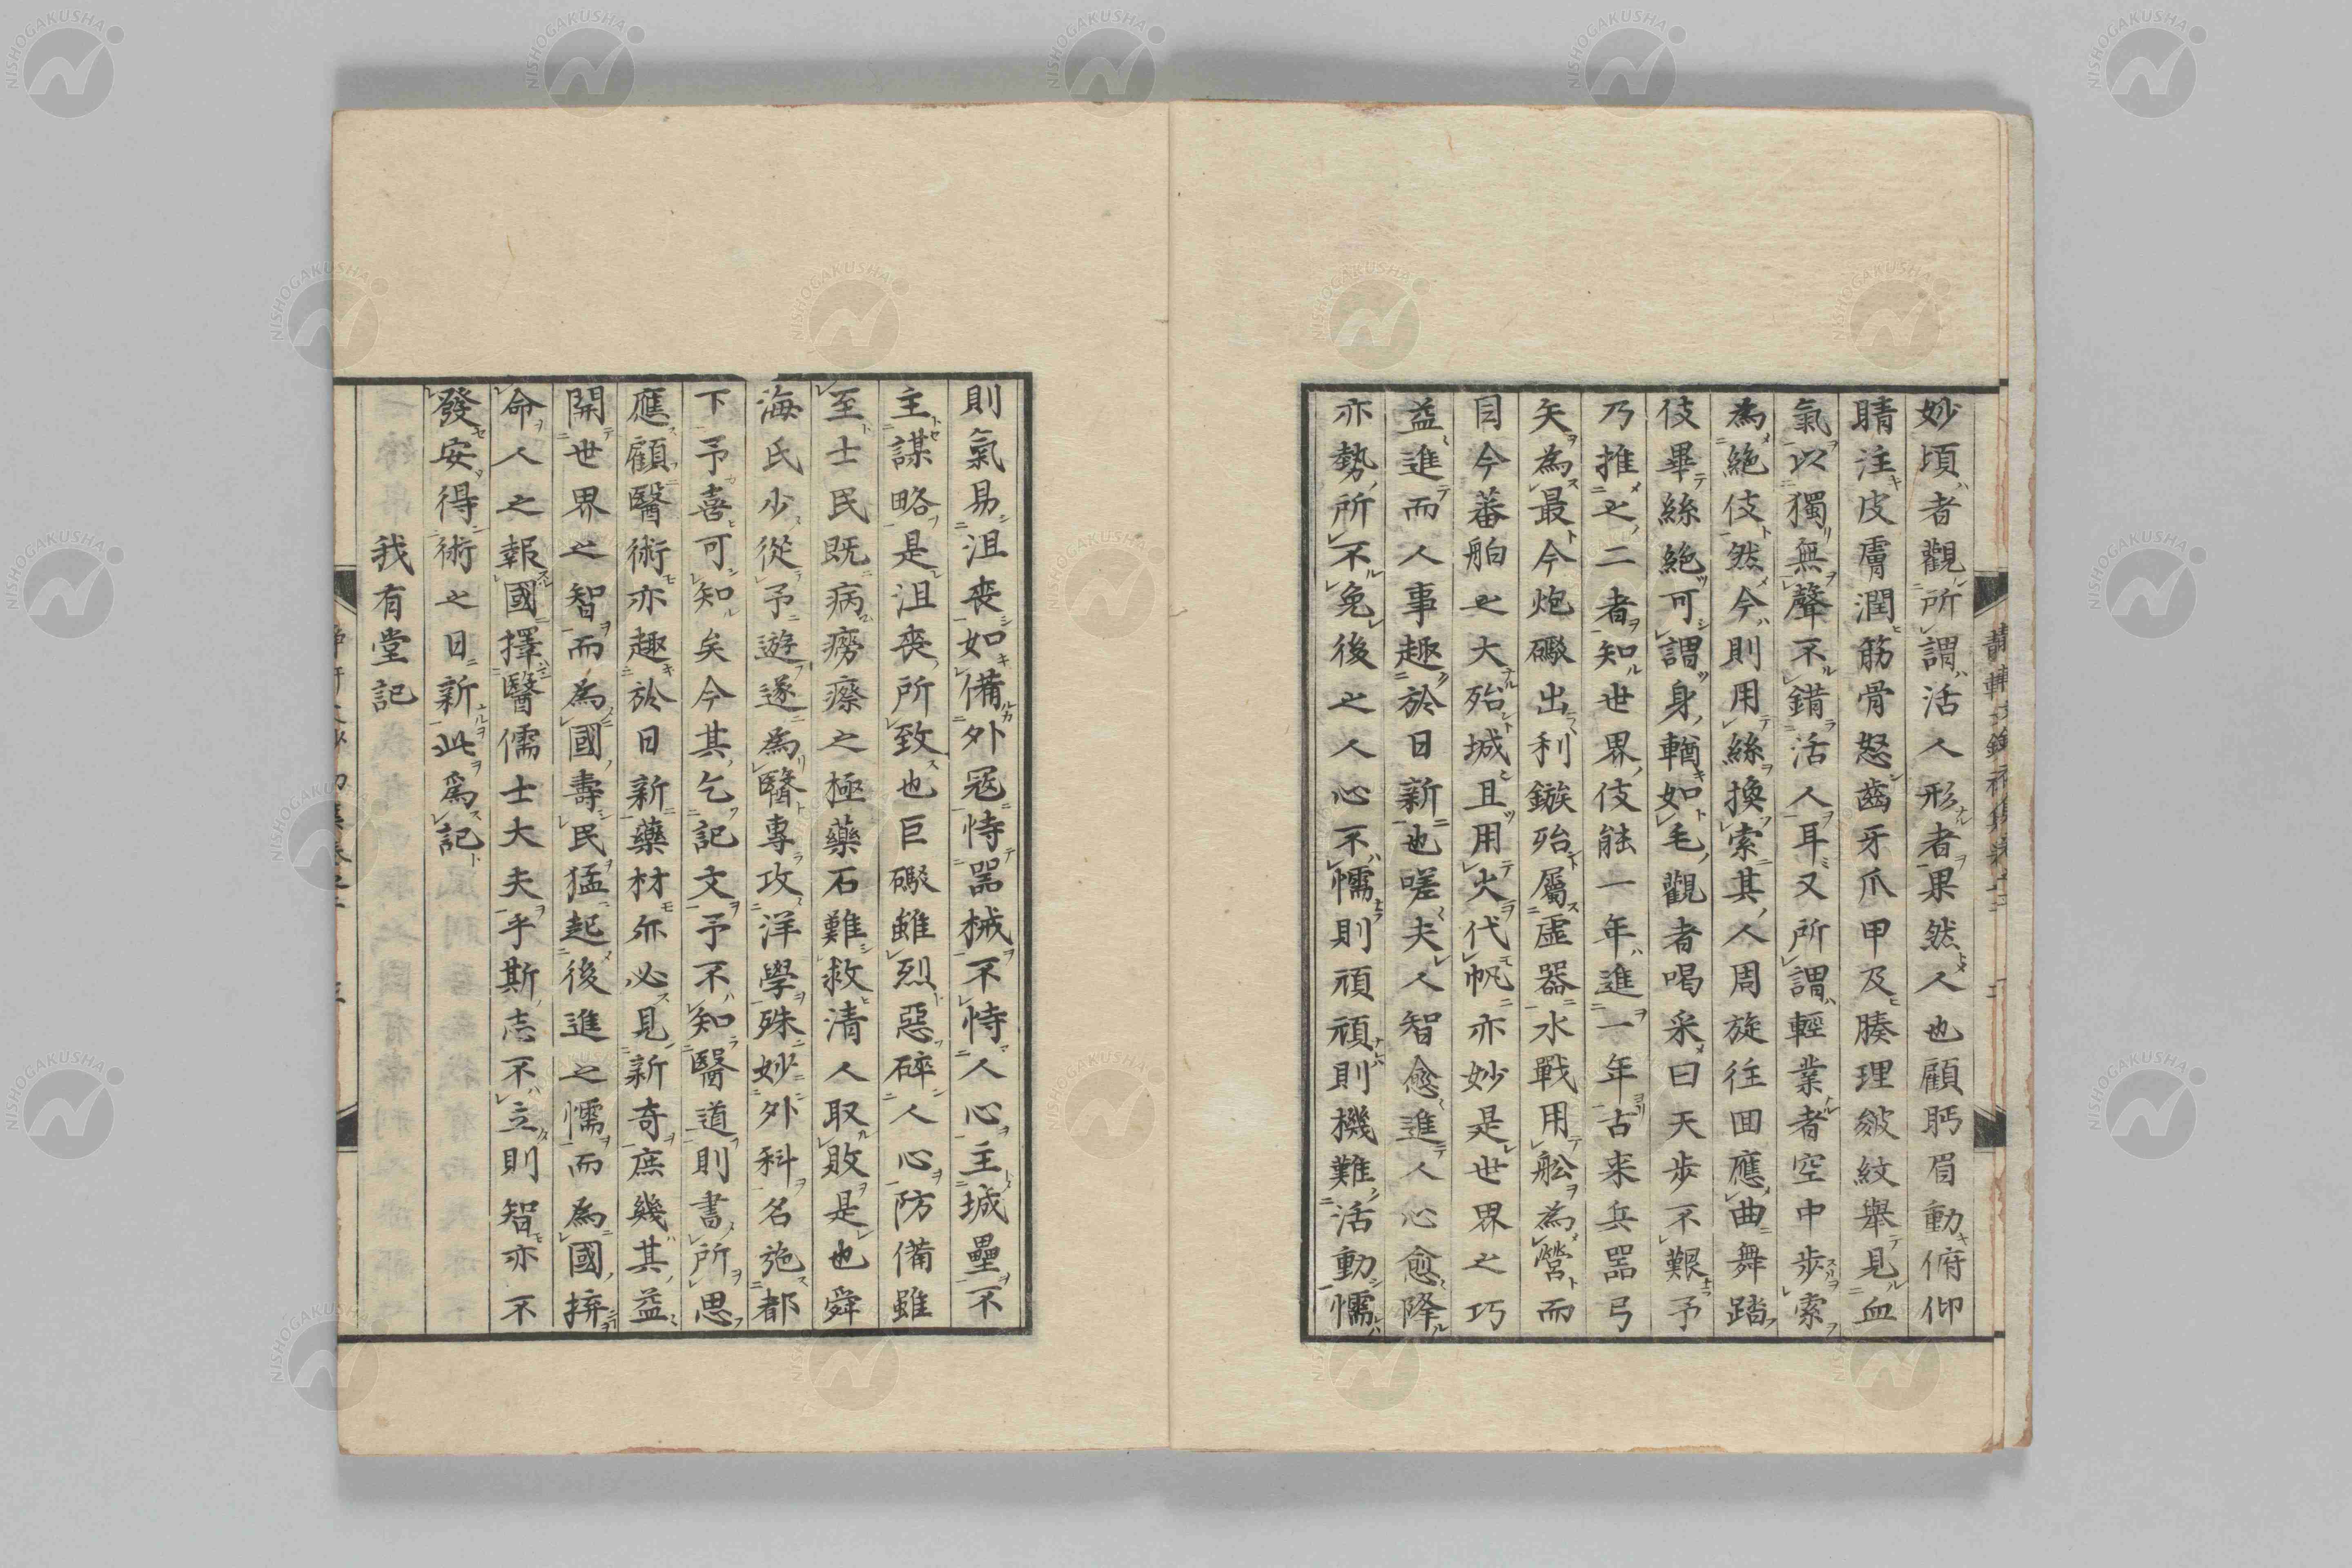 妙頃者觀所謂活人形者果然人也顧眄眉動俯仰
睛注皮膚潤筋骨怒齒牙爪甲及腠理皴紋舉見血
氣以獨無聲不錯活人耳又所謂輕業者空中步索
為絶伎然今則用絲換索其人周旋往囬應曲舞踏
伎畢絲絶可謂身輶如毛觀者喝采曰天步不艱予
乃推之二者知世界伎能一年進一年古来兵器弓
矢為最今炮礮出利鏃殆屬虛器水戰用舩為營而
目今蕃舶之大殆城且用火代帆亦妙是世界之巧
益進而人事趣於日新也嗟夫人智愈進人心愈降
亦勢所不免後之人心不懦則頑頑則機難活動懦
則氣易沮喪如備外冦恃器械不恃人心主城壘不
主謀略是沮喪所致也巨礮雖烈惡碎人心防備雖
至士民既病癆瘵之極藥石難救清人取敗是也舜
海氏少從予遊遂為醫專攻洋學殊妙外科名施都
下予喜可知矣今其乞記文予不知醫道則書所思
應顧醫術亦趣於日新藥材亦必見新奇庶幾其益
開世界之智而為國壽民猛起後進之懦而為國擠
命人之報國擇醫儒士大夫乎斯志不立則智亦不
發安得術之日新此爲記
我有堂記
NISHOGAKUSHA